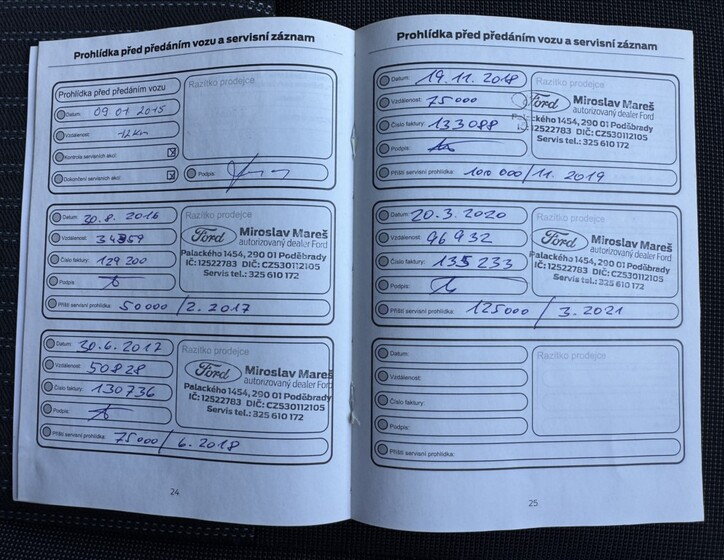 Prohlídka před předáním vozu a servisní záznam
Prohlídka před předáním vozu
Razítko prodejce
Datum: 09 01 2015
Vzdálenost: 12km
Kontrola servisních akcí:
Dokončení servisních akcí:
Podpis:
Datum: 30.8. 2016
Vzdálenost: 34859
Číslo faktury: 129 200
Podpis:
Příští servisní prohlídka: 50000/2.2017
Razítko prodejce
Ford Miroslav Mareš
autorizovaný dealer Ford
Palackého 1454, 290 01 Poděbrady
IČ: 12522783 DIČ: CZ530112105
Servis tel.: 325 610 172
Datum: 30.6.2017
Vzdálenost: 50828
Číslo faktury: 130736
Podpis:
Příští servisní prohlídka: 75000/6.2018
Razítko prodejce
Ford Miroslav Mareš
autorizovaný dealer Ford
Palackého 1454, 290 01 Poděbrady
IČ: 12522783 DIČ: CZ530112105
Servis tel.: 325 610 172
24
Prohlídka před předáním vozu a servisní záznam
Datum: 19.11.2018
Vzdálenost: 75000
Číslo faktury: 133088
Podpis:
Příští servisní prohlídka: 100 000/11.2019
Ford Miroslav Mareš
autorizovaný dealer Ford
Palackého 1454, 290 01 Poděbrady
IČ: 12522783 DIČ: CZ530112105
Servis tel.: 325 610 172
Datum: 20.3.2020
Vzdálenost: 96932
Číslo faktury: 135 233
Podpis:
Příští servisní prohlídka: 125000/3.2021
Razítko prodejce
Ford Miroslav Mareš
autorizovaný dealer Ford
Palackého 1454, 290 01 Poděbrady
IČ: 12522783 DIČ: CZ530112105
Servis tel.: 325 610 172
Datum:
Vzdálenost:
Číslo faktury:
Podpis:
Příští servisní prohlídka:
Razítko prodejce
25